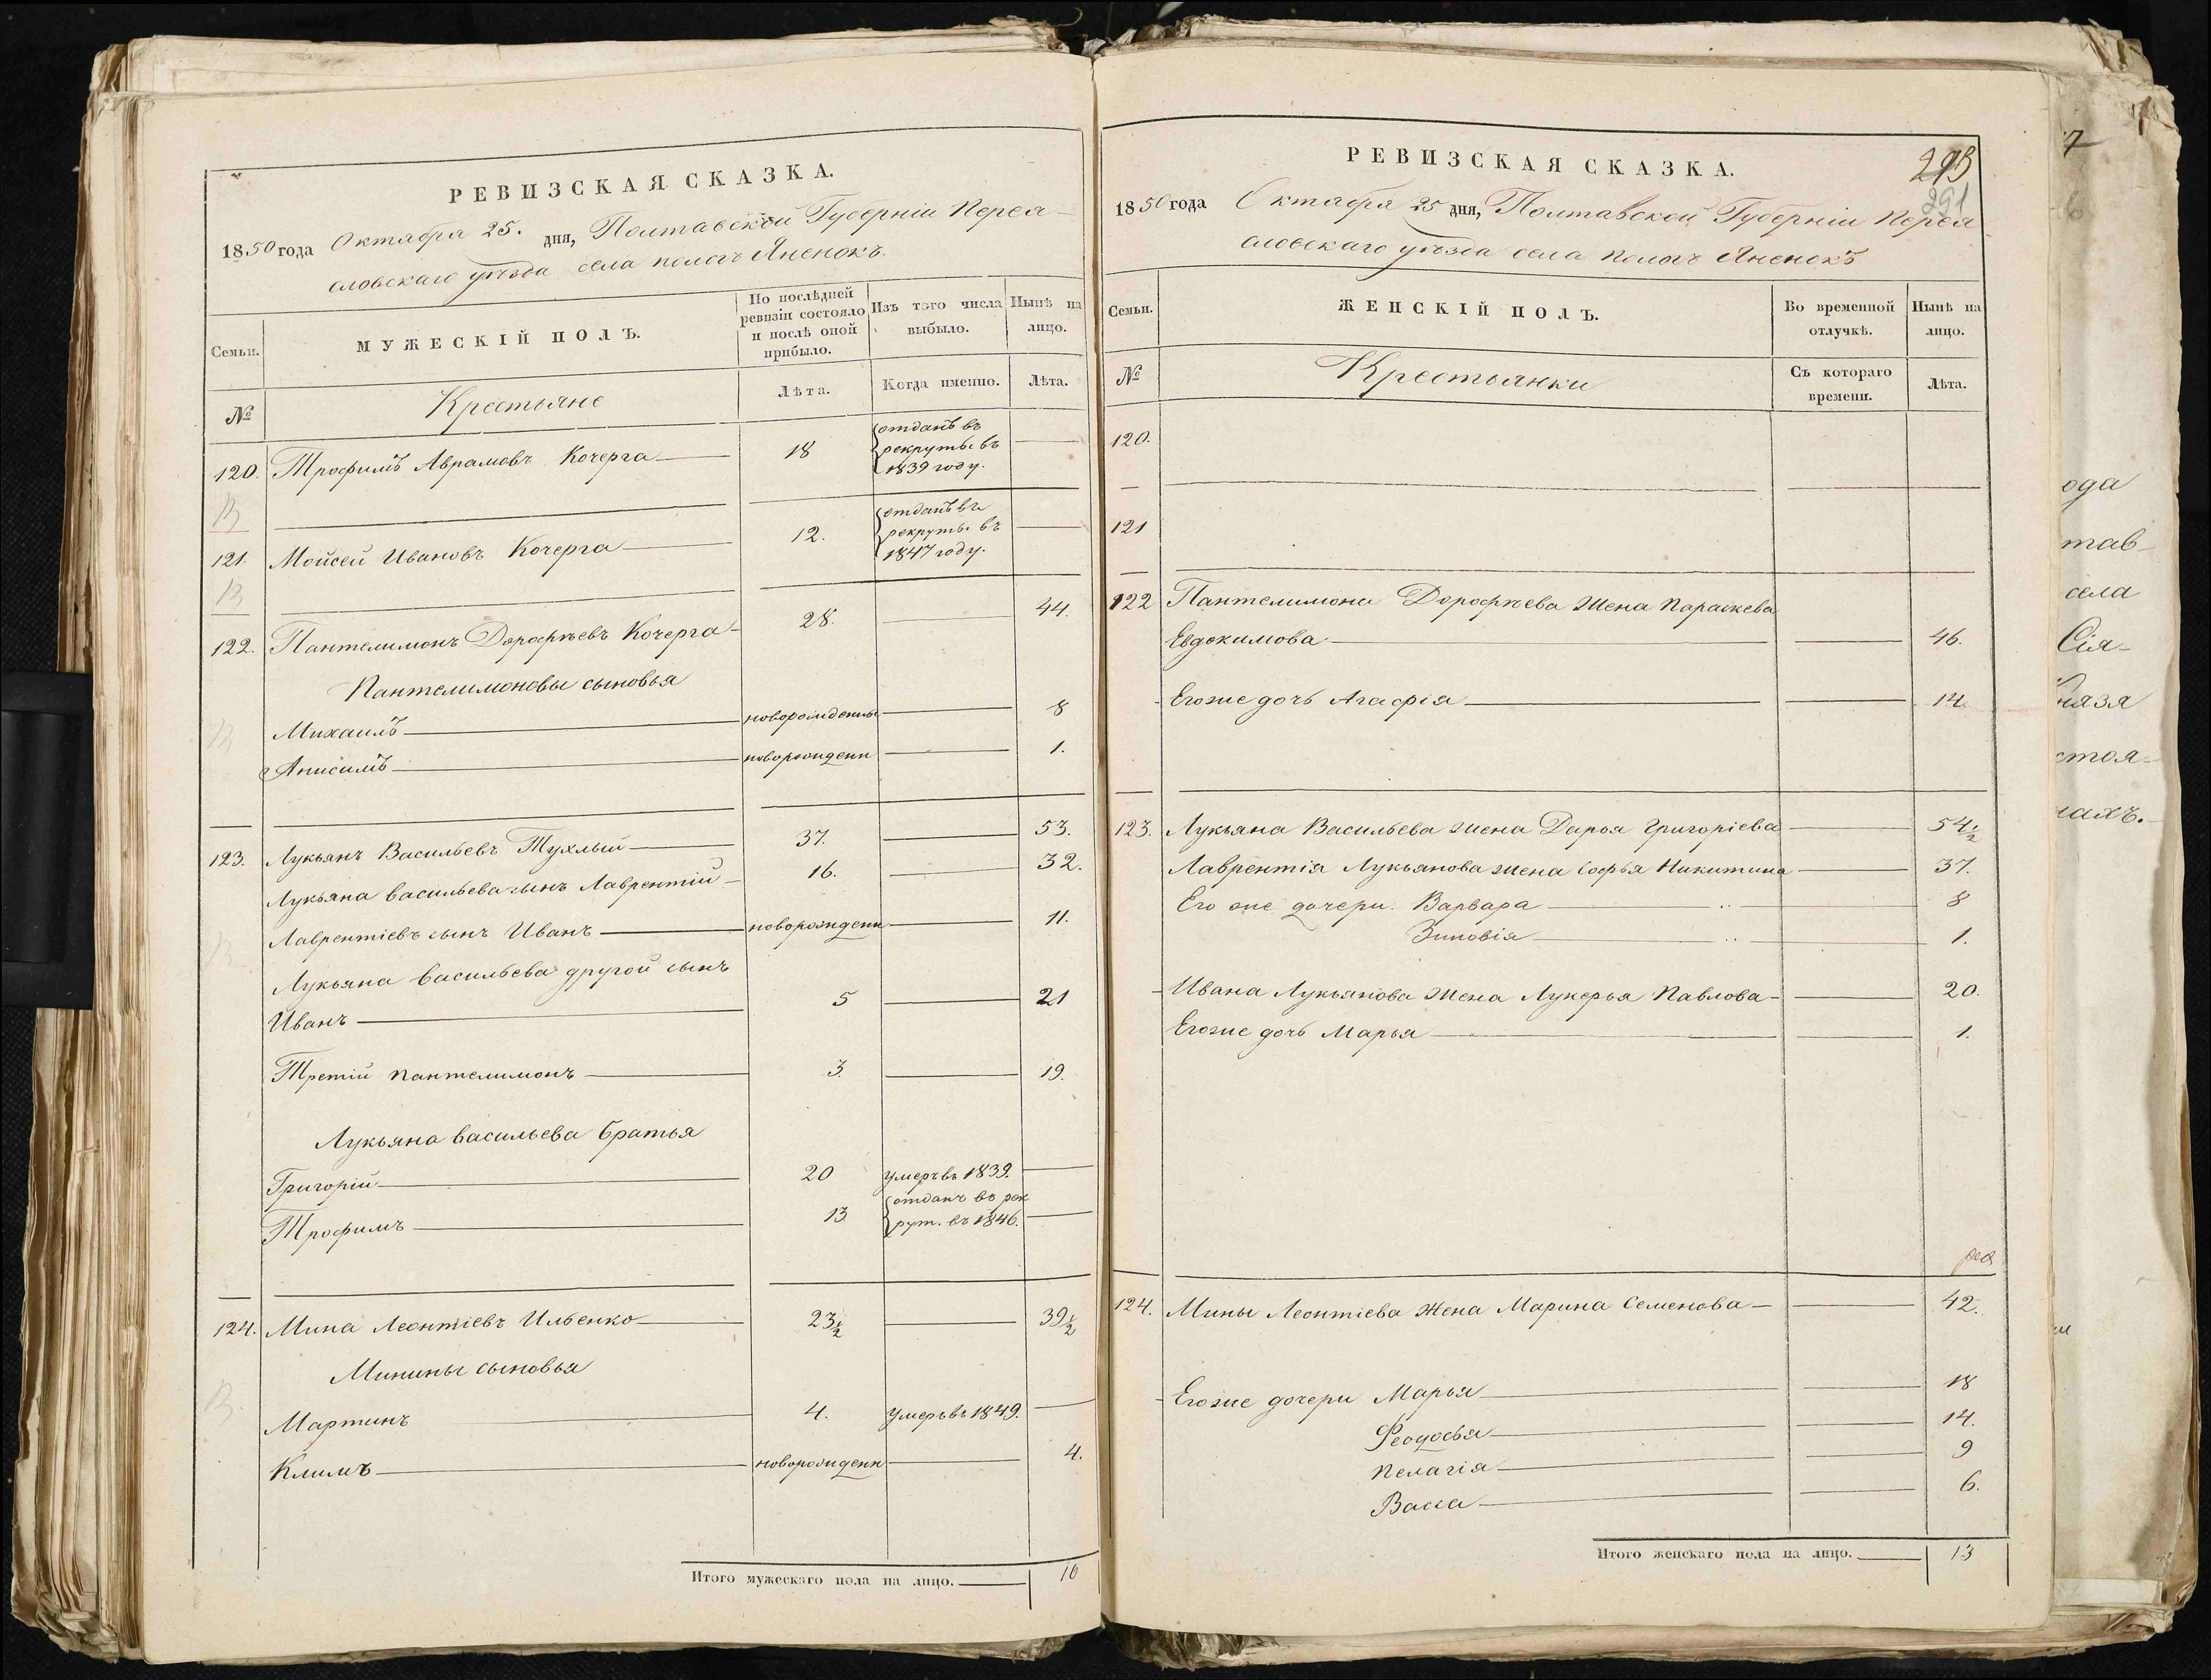 РЕВИЗСКАЯ СКАЗКА.
1850 года Октября 25. дня, Полтавской Губерніи Перея-
словскаго уѣзда села Пологъ Яненокъ.
Семьи.
МУЖЕСКІЙ ПОЛЪ.
По послѣдней ревизіи состояло и послѣ оной прибыло.
Изъ того числа выбыло.
Нынѣ на лицо.
№
Крестьяне
Лѣта.
Когда именно.
Лѣта.
120. Трофимъ Аврамовъ Кочерга 18 отданъ въ рекруты въ 1839 году.
121. Мойсей Ивановъ Кочерга 12. отданъ въ рекруты въ 1847 году.
122. Пантелимонъ Дорофѣевъ Кочерга 28. 44.
Пантелимоновы сыновья
Михаилъ новорожденны 8
2 Анисимъ новорожденн 1.
123. Лукьянъ Васильевъ Тухлый 37. 53.
Лукьяна Васильева сынъ Лаврентій 16. 32.
Лаврентіевъ сынъ Иванъ новорожденн 11.
Лукьяна Васильева другой сынъ
Иванъ 5 21
Третій Пантелимонъ 3. 19.
Лукьяна Васильева братья
Григорій 20 умеръ въ 1839.
Трофимъ 13 отданъ въ рек рут. въ 1846.
124. Мина Леонтіевъ Ильенко 23½ 39½
Минины сыновья
Мартинъ 4. умеръ въ 1849.
Климъ новорожденн 4.
Итого мужескаго пола на лицо. 10
РЕВИЗСКАЯ СКАЗКА.
293
291
1850 года Октября 25 дня, Полтавской Губерніи Перея
словскаго уѣзда села Пологъ Яненокъ
Семьи.
ЖЕНСКІЙ ПОЛЪ.
Во временной отлучкѣ.
Нынѣ на лицо.
№
Крестьянки
Съ котораго времени.
Лѣта.
120.
121
122 Пантелимона Дорофѣева жена Параскева
Евдокимова 46.
Егоже дочь Агафія 14.
123. Лукьяна Васильева жена Дарья Григоріева 54½
Лаврентія Лукьянова жена Софья Никитина 37.
Его же дочери. Варвара 8
Зиновія 1.
Ивана Лукьянова жена Лукерья Павлова 20.
Егоже дочь Марья 1.
124. Мины Леонтіева жена Марина Семенова 42.
Егоже дочери Марья 18
Феодосья 14.
Пелагія 9
Васса 6.
Итого женскаго пола на лицо. 13
ода
тав-
села
Сія-
Князя
стоя-